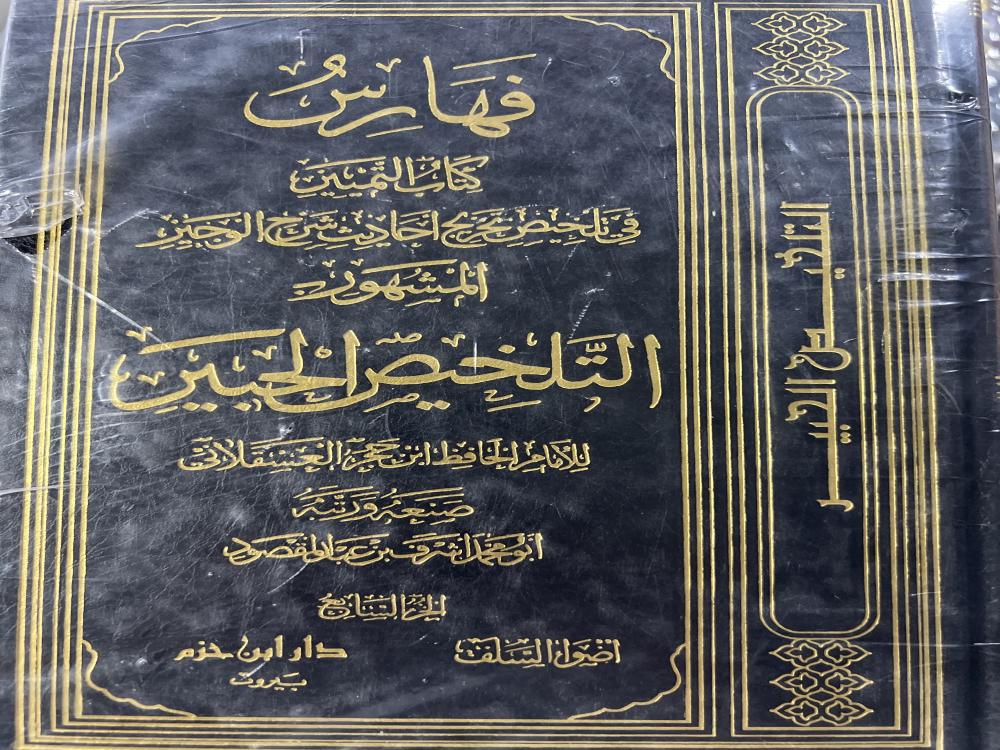 فَهَارِسُ
كِتَابُ التَّمْيِيزِ
فِي تَلْخِيصِ تَخْرِيجِ أَحَادِيثِ شَرْحِ الوَجِيزِ
المَشْهُورِ بِـ
التَّلْخِيصِ الحَبِيرِ
للإمام الحافظ ابن حجر العسقلاني
صَنَعَهُ وَرَتَّبَهُ
أبو محمد أشرف بن عبد المقصود
الجزء السابع
أضواء السلف
دار ابن حزم
بيروت
التلخيـــص الحبيـــر